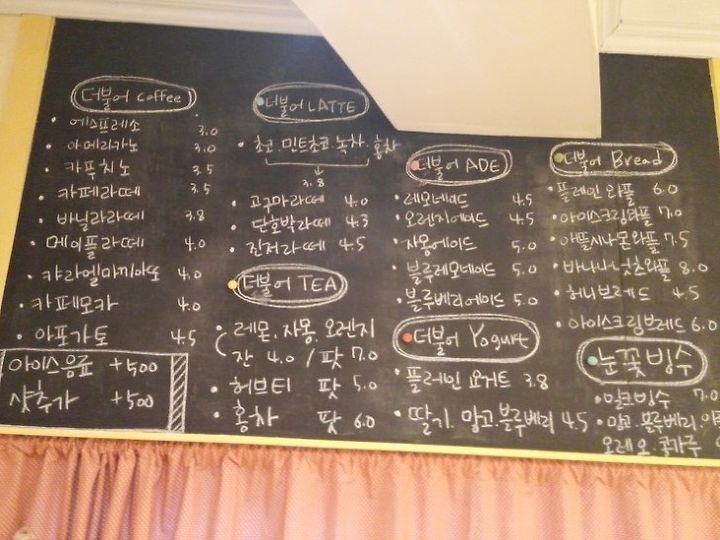 더불어 coffee
에스프레소 3.0
아메리카노 3.0
카푸치노 3.5
카페라떼 3.5
바닐라라떼 3.8
메이플라떼 4.0
카라멜마끼아또 4.0
카페모카 4.0
아포가토 4.5
아이스음료 +500
샷추가 +500
더불어 LATTE
초코.민트초코.녹차.홍차
3.8
고구마라떼 4.0
단호박라떼 4.3
진저라떼 4.5
더불어 TEA
레몬.자몽.오렌지
잔 4.0 / 팟 7.0
허브티 팟 5.0
홍차 팟 6.0
더불어 ADE
레몬에이드 4.5
오렌지에이드 4.5
자몽에이드 5.0
블루레몬에이드 5.0
블루베리에이드 5.0
더불어 Yogurt
플레인 요거트 3.8
딸기.망고.블루베리 4.5
더불어 Bread
플레인 와플 6.0
아이스크림와플 7.0
애플시나몬와플 7.5
바나나넛츠와플 8.0
허니브레드 4.5
아이스크림브레드 6.0
눈꽃빙수
밀크빙수 7.0
망고.블루베리.
오레오.콩가루